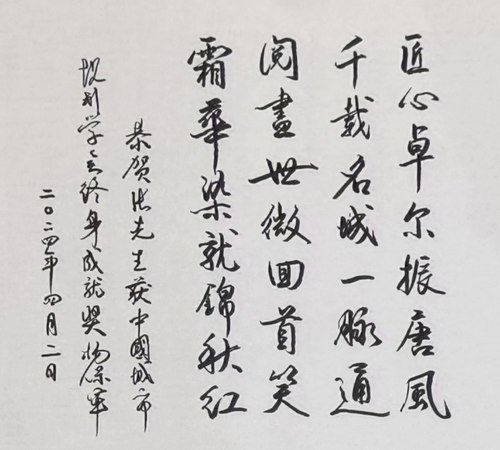 匠心卓尔振唐風
千載名城一脈通
阅盡世微回首笑
霜華染就錦秋红
恭贺张先生获中國城市
规划学会终身成就奖 杨保军
二〇二四年四月二日